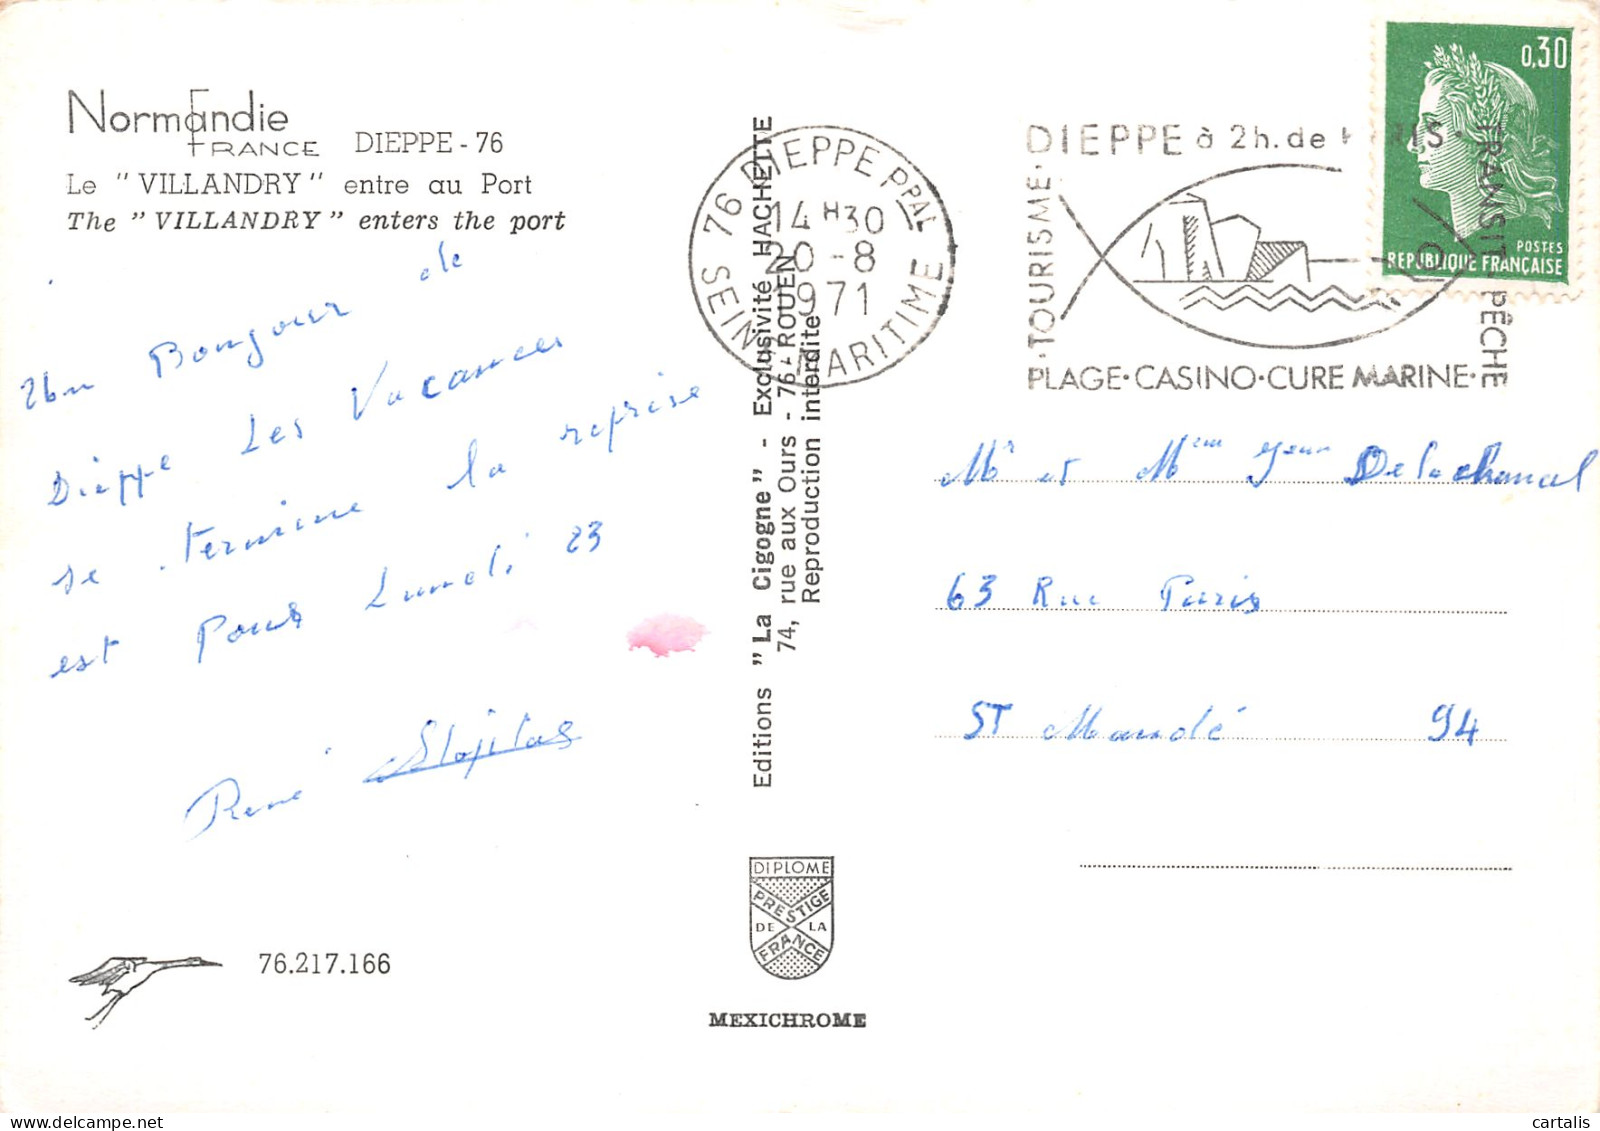 Normandie
FRANCE DIEPPE - 76
Le " VILLANDRY " entre au Port
The " VILLANDRY " enters the port
Un Bonjour de
Dieppe Les Vacances
se termine la reprise
est Pour Lundi 23
René
76.217.166
Editions "La Cigogne" - Exclusivité HACHETTE
74, rue aux Ours - 76 - ROUEN
Reproduction interdite
DIPLOME
PRESTIGE
DE LA
FRANCE
MEXICHROME
76 DIEPPE PPAL
14 H 30
20 - 8
1971
SEINE MARITIME
DIEPPE à 2h. de PARIS
TOURISME
TRANSIT. PÊCHE
PLAGE·CASINO·CURE MARINE·
0,30
POSTES
REPUBLIQUE FRANÇAISE
Mr et Mme Delachanal
63 Rue Paris
ST Mandé 94
cartalis
delcampe.net